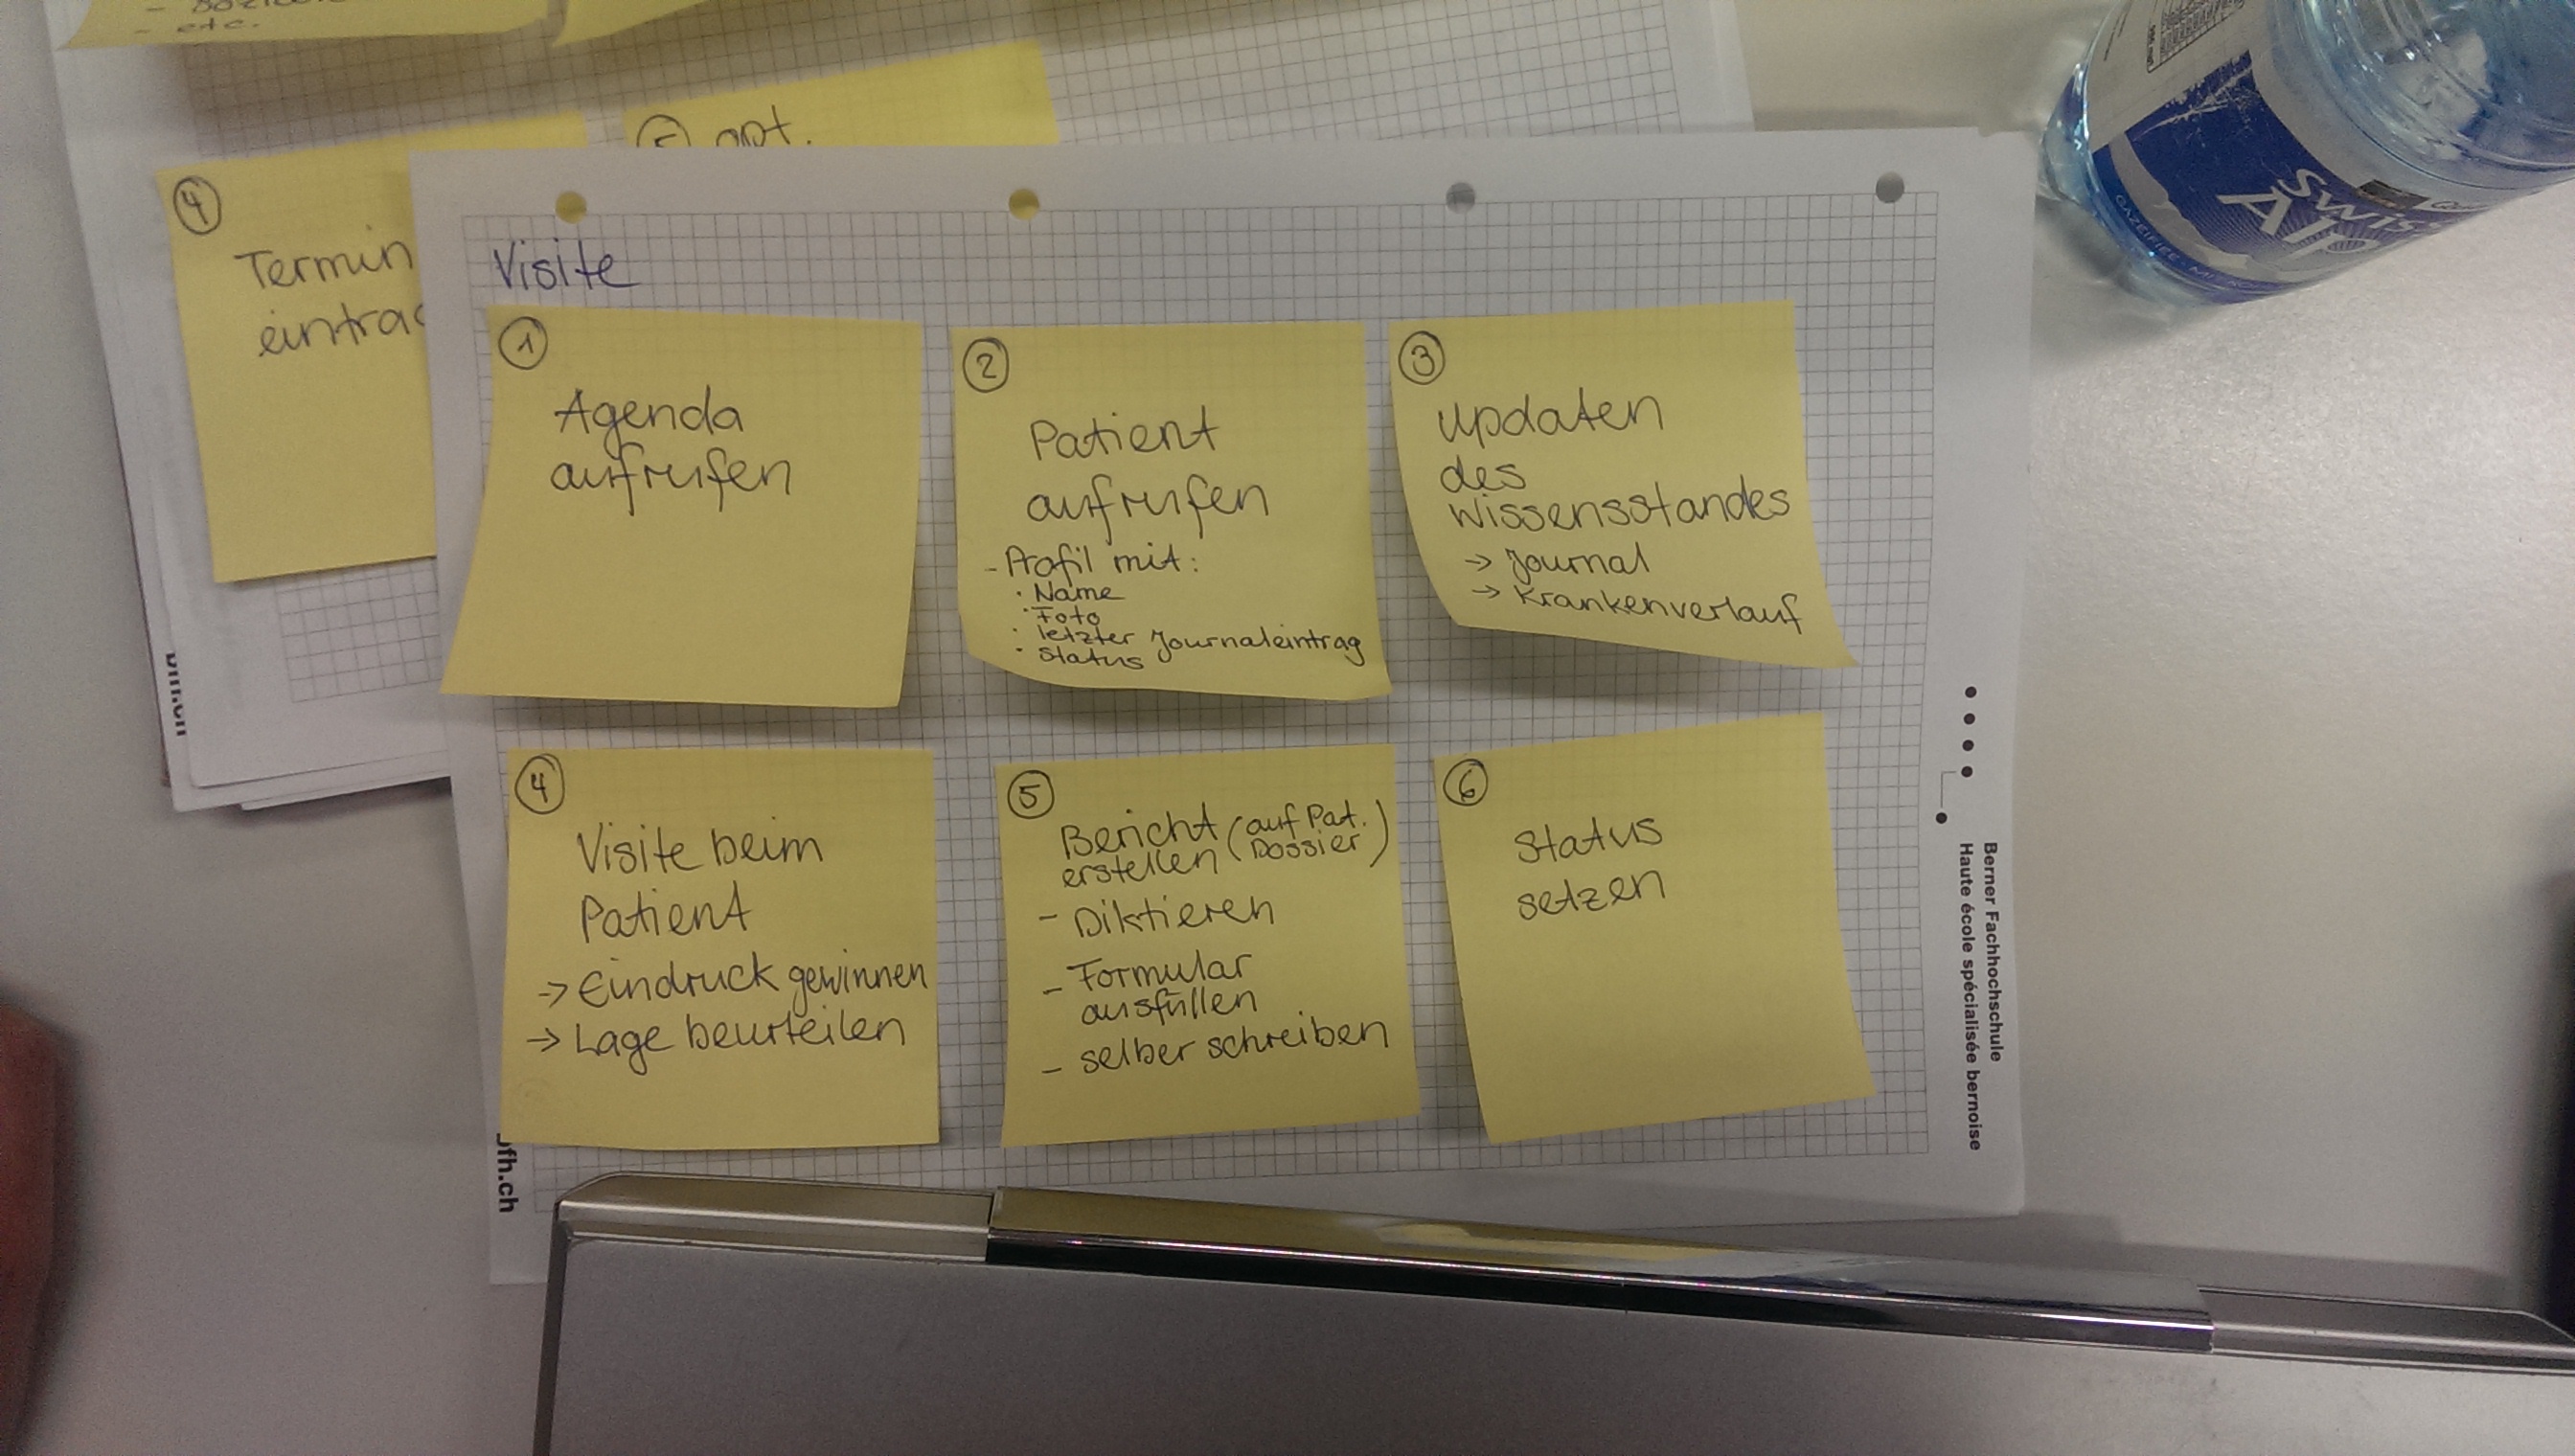 - etc.
④
Termin
⑤ opt.
Visite
①
Agenda
aufrufen
②
Patient
aufrufen
- Profil mit:
· Name
· Foto
· letzter Journaleintrag
· Status
③
updaten
des
Wissensstandes
→ Journal
→ Krankenverlauf
④
Visite beim
Patient
→ Eindruck gewinnen
→ Lage beurteilen
⑤
Bericht (auf Pat.
erstellen Dossier)
- Diktieren
- Formular
ausfüllen
- selber schreiben
⑥
Status
setzen
Berner Fachhochschule
Haute école spécialisée bernoise
bfh.ch
bfh.ch